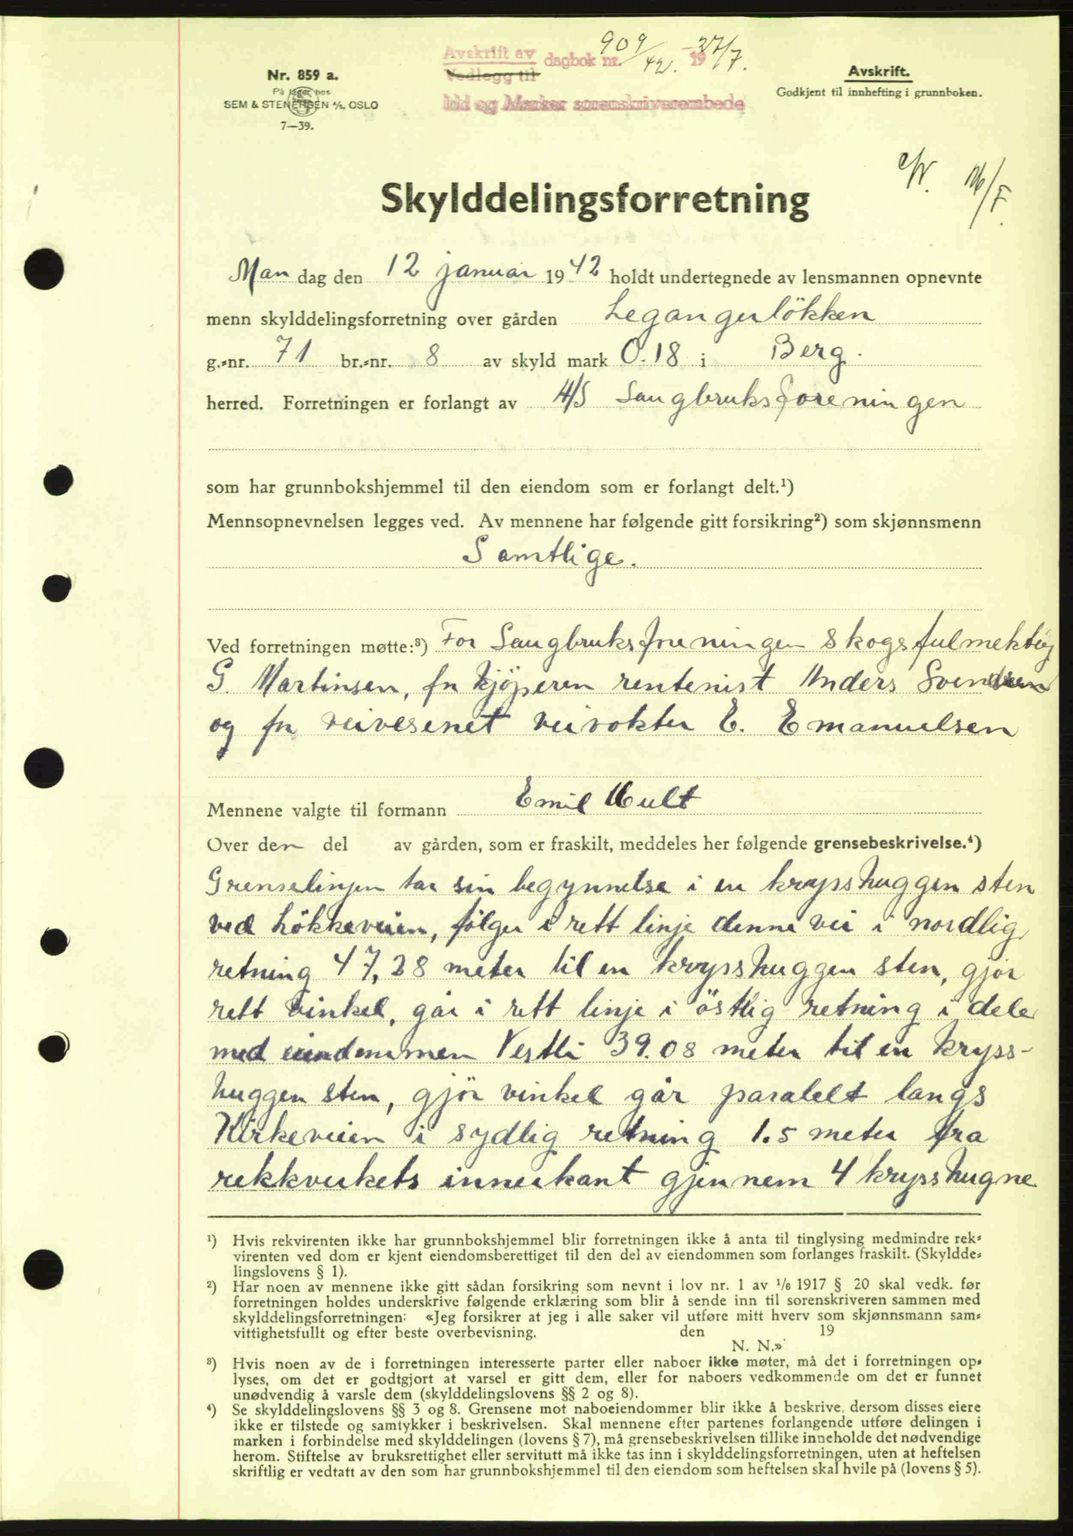 Nr. 859 a.
På lager hos
SEM & STENERSEN A/S, OSLO
7—39.
Avskrift av
Vedlegg til
dagbok nr. 909/42. 1937/7.
Idd og Marker sorenskriverembede
Avskrift.
Godkjent til innhefting i grunnboken.
Skylddelingsforretning
Man dag den 12 januar 1942 holdt undertegnede av lensmannen opnevnte
menn skylddelingsforretning over gården Legangerlökken
g.-nr. 71 br.-nr. 8 av skyld mark 0.18 i Berg.
herred. Forretningen er forlangt av A/S Saugbruksforeningen
som har grunnbokshjemmel til den eiendom som er forlangt delt.¹)
Mennsopnevnelsen legges ved. Av mennene har følgende gitt forsikring²) som skjønnsmenn
Samtlige.
Ved forretningen møtte:³) For Saugbruksforeningen skogsfulmektig
G. Martinsen, for kjöperen rentenist Anders Svendsen
og for veivesenet veivokter E. Emanuelsen
Mennene valgte til formann Emil Hult
Over den del av gården, som er fraskilt, meddeles her følgende grensebeskrivelse.⁴)
Grenselinjen tar sin begynnelse i en krysshuggen sten
ved Lökkeveien, følger i rett linje denne vei i nordlig
retning 47,28 meter til en krysshuggen sten, gjør
rett vinkel, går i rett linje i östlig retning i dele
med eiendommen Vestli 39.08 meter til en kryss-
huggen sten, gjør vinkel går paralelt langs
Kirkeveien i sydlig retning 1.5 meter fra
rekkverkets innerkant gjennem 4 krysshugne
¹) Hvis rekvirenten ikke har grunnbokshjemmel blir forretningen ikke å anta til tinglysing medmindre rek-
virenten ved dom er kjent eiendomsberettiget til den del av eiendommen som forlanges fraskilt. (Skyldde-
lingslovens § 1).
²) Har noen av mennene ikke gitt sådan forsikring som nevnt i lov nr. 1 av 1/6 1917 § 20 skal vedk. før
forretningen holdes underskrive følgende erklæring som blir å sende inn til sorenskriveren sammen med
skylddelingsforretningen: «Jeg forsikrer at jeg i alle saker vil utføre mitt hverv som skjønnsmann sam-
vittighetsfullt og efter beste overbevisning. den 19
N. N.»
³) Hvis noen av de i forretningen interesserte parter eller naboer ikke møter, må det i forretningen op-
lyses, om det er godtgjort at varsel er gitt dem, eller for naboers vedkommende om det er funnet
unødvendig å varsle dem (skylddelingslovens §§ 2 og 8).
⁴) Se skylddelingslovens §§ 3 og 8. Grensene mot naboeiendommer blir ikke å beskrive, dersom disses eiere
ikke er tilstede og samtykker i beskrivelsen. Skal mennene efter partenes forlangende utføre delingen i
marken i forbindelse med skylddelingen (lovens § 7), må grensebeskrivelsen tillike inneholde det nødvendige
herom. Stiftelse av bruksrettighet eller servitutt må ikke tas inn i skylddelingsforretningen, uten at heftelsen
skriftlig er vedtatt av den som har grunnbokshjemmel til den eiendom som heftelsen skal hvile på (lovens § 5).